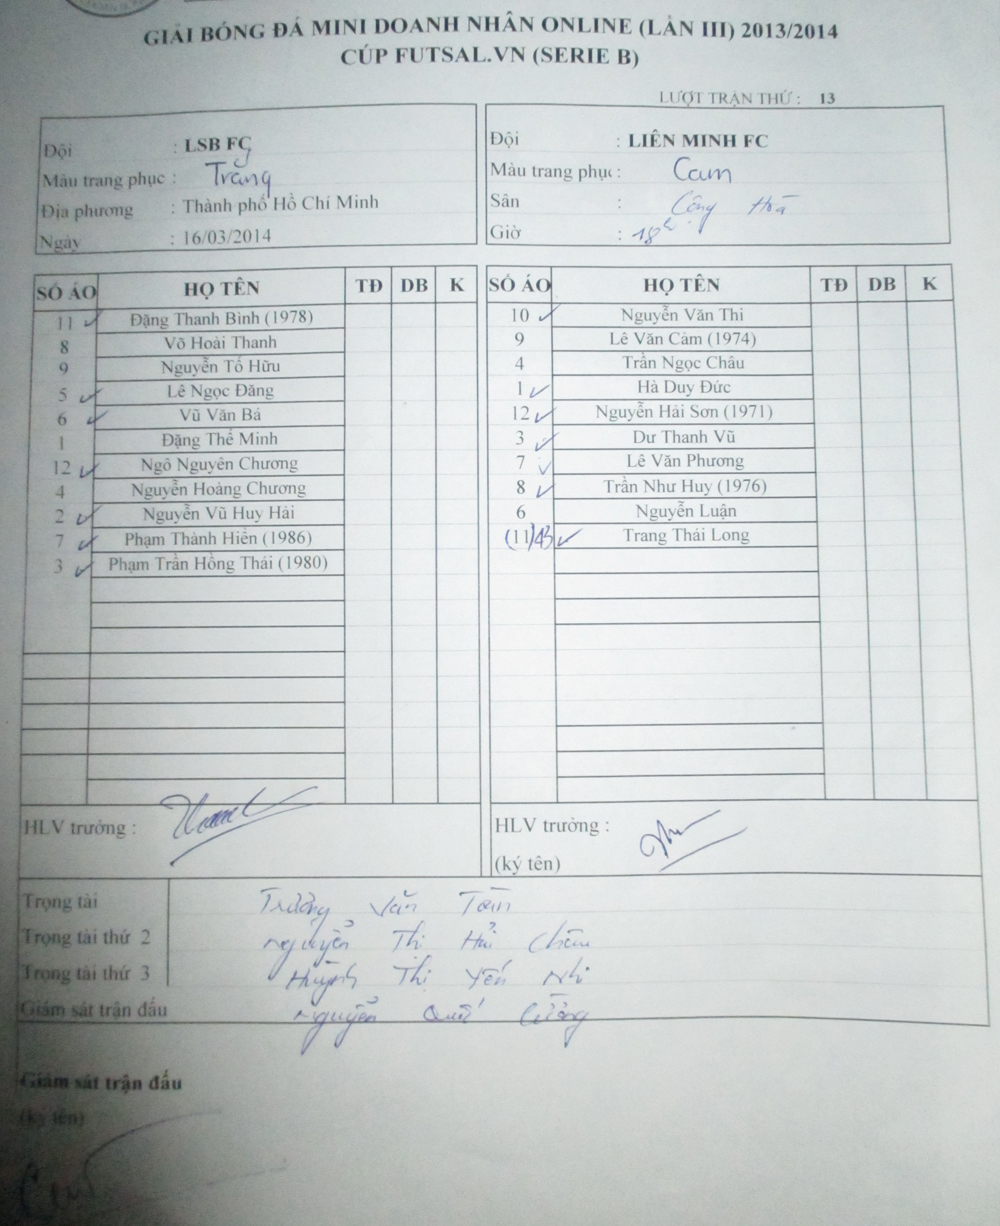 GIẢI BÓNG ĐÁ MINI DOANH NHÂN ONLINE (LẦN III) 2013/2014
CÚP FUTSAL.VN (SERIE B)
LƯỢT TRẬN THỨ : 13
Đội : LSB FC
Màu trang phục : Trắng
Địa phương : Thành phố Hồ Chí Minh
Ngày : 16/03/2014
Đội : LIÊN MINH FC
Màu trang phục : Cam
Sân : Cộng Hoà
Giờ : 18h
SỐ ÁO HỌ TÊN TĐ DB K
11 ✓ Đặng Thanh Bình (1978)
8 Võ Hoài Thanh
9 Nguyễn Tố Hữu
5 ✓ Lê Ngọc Đăng
6 ✓ Vũ Văn Bá
1 Đặng Thế Minh
12 ✓ Ngô Nguyên Chương
4 Nguyễn Hoàng Chương
2 ✓ Nguyễn Vũ Huy Hải
7 ✓ Phạm Thành Hiển (1986)
3 ✓ Phạm Trần Hồng Thái (1980)
SỐ ÁO HỌ TÊN TĐ DB K
10 ✓ Nguyễn Văn Thi
9 Lê Văn Cảm (1974)
4 Trần Ngọc Châu
1 ✓ Hà Duy Đức
12 ✓ Nguyễn Hải Sơn (1971)
3 ✓ Dư Thanh Vũ
7 ✓ Lê Văn Phương
8 ✓ Trần Như Huy (1976)
6 Nguyễn Luận
(11) ✓ Trang Thái Long
HLV trưởng :
HLV trưởng :
(ký tên)
Trọng tài Trương Văn
Trọng tài thứ 2 Nguyễn Thị Hải
Trọng tài thứ 3 Huỳnh Thị Yến Nhi
Giám sát trận đấu Nguyễn Quốc
Giám sát trận đấu
(ký tên)